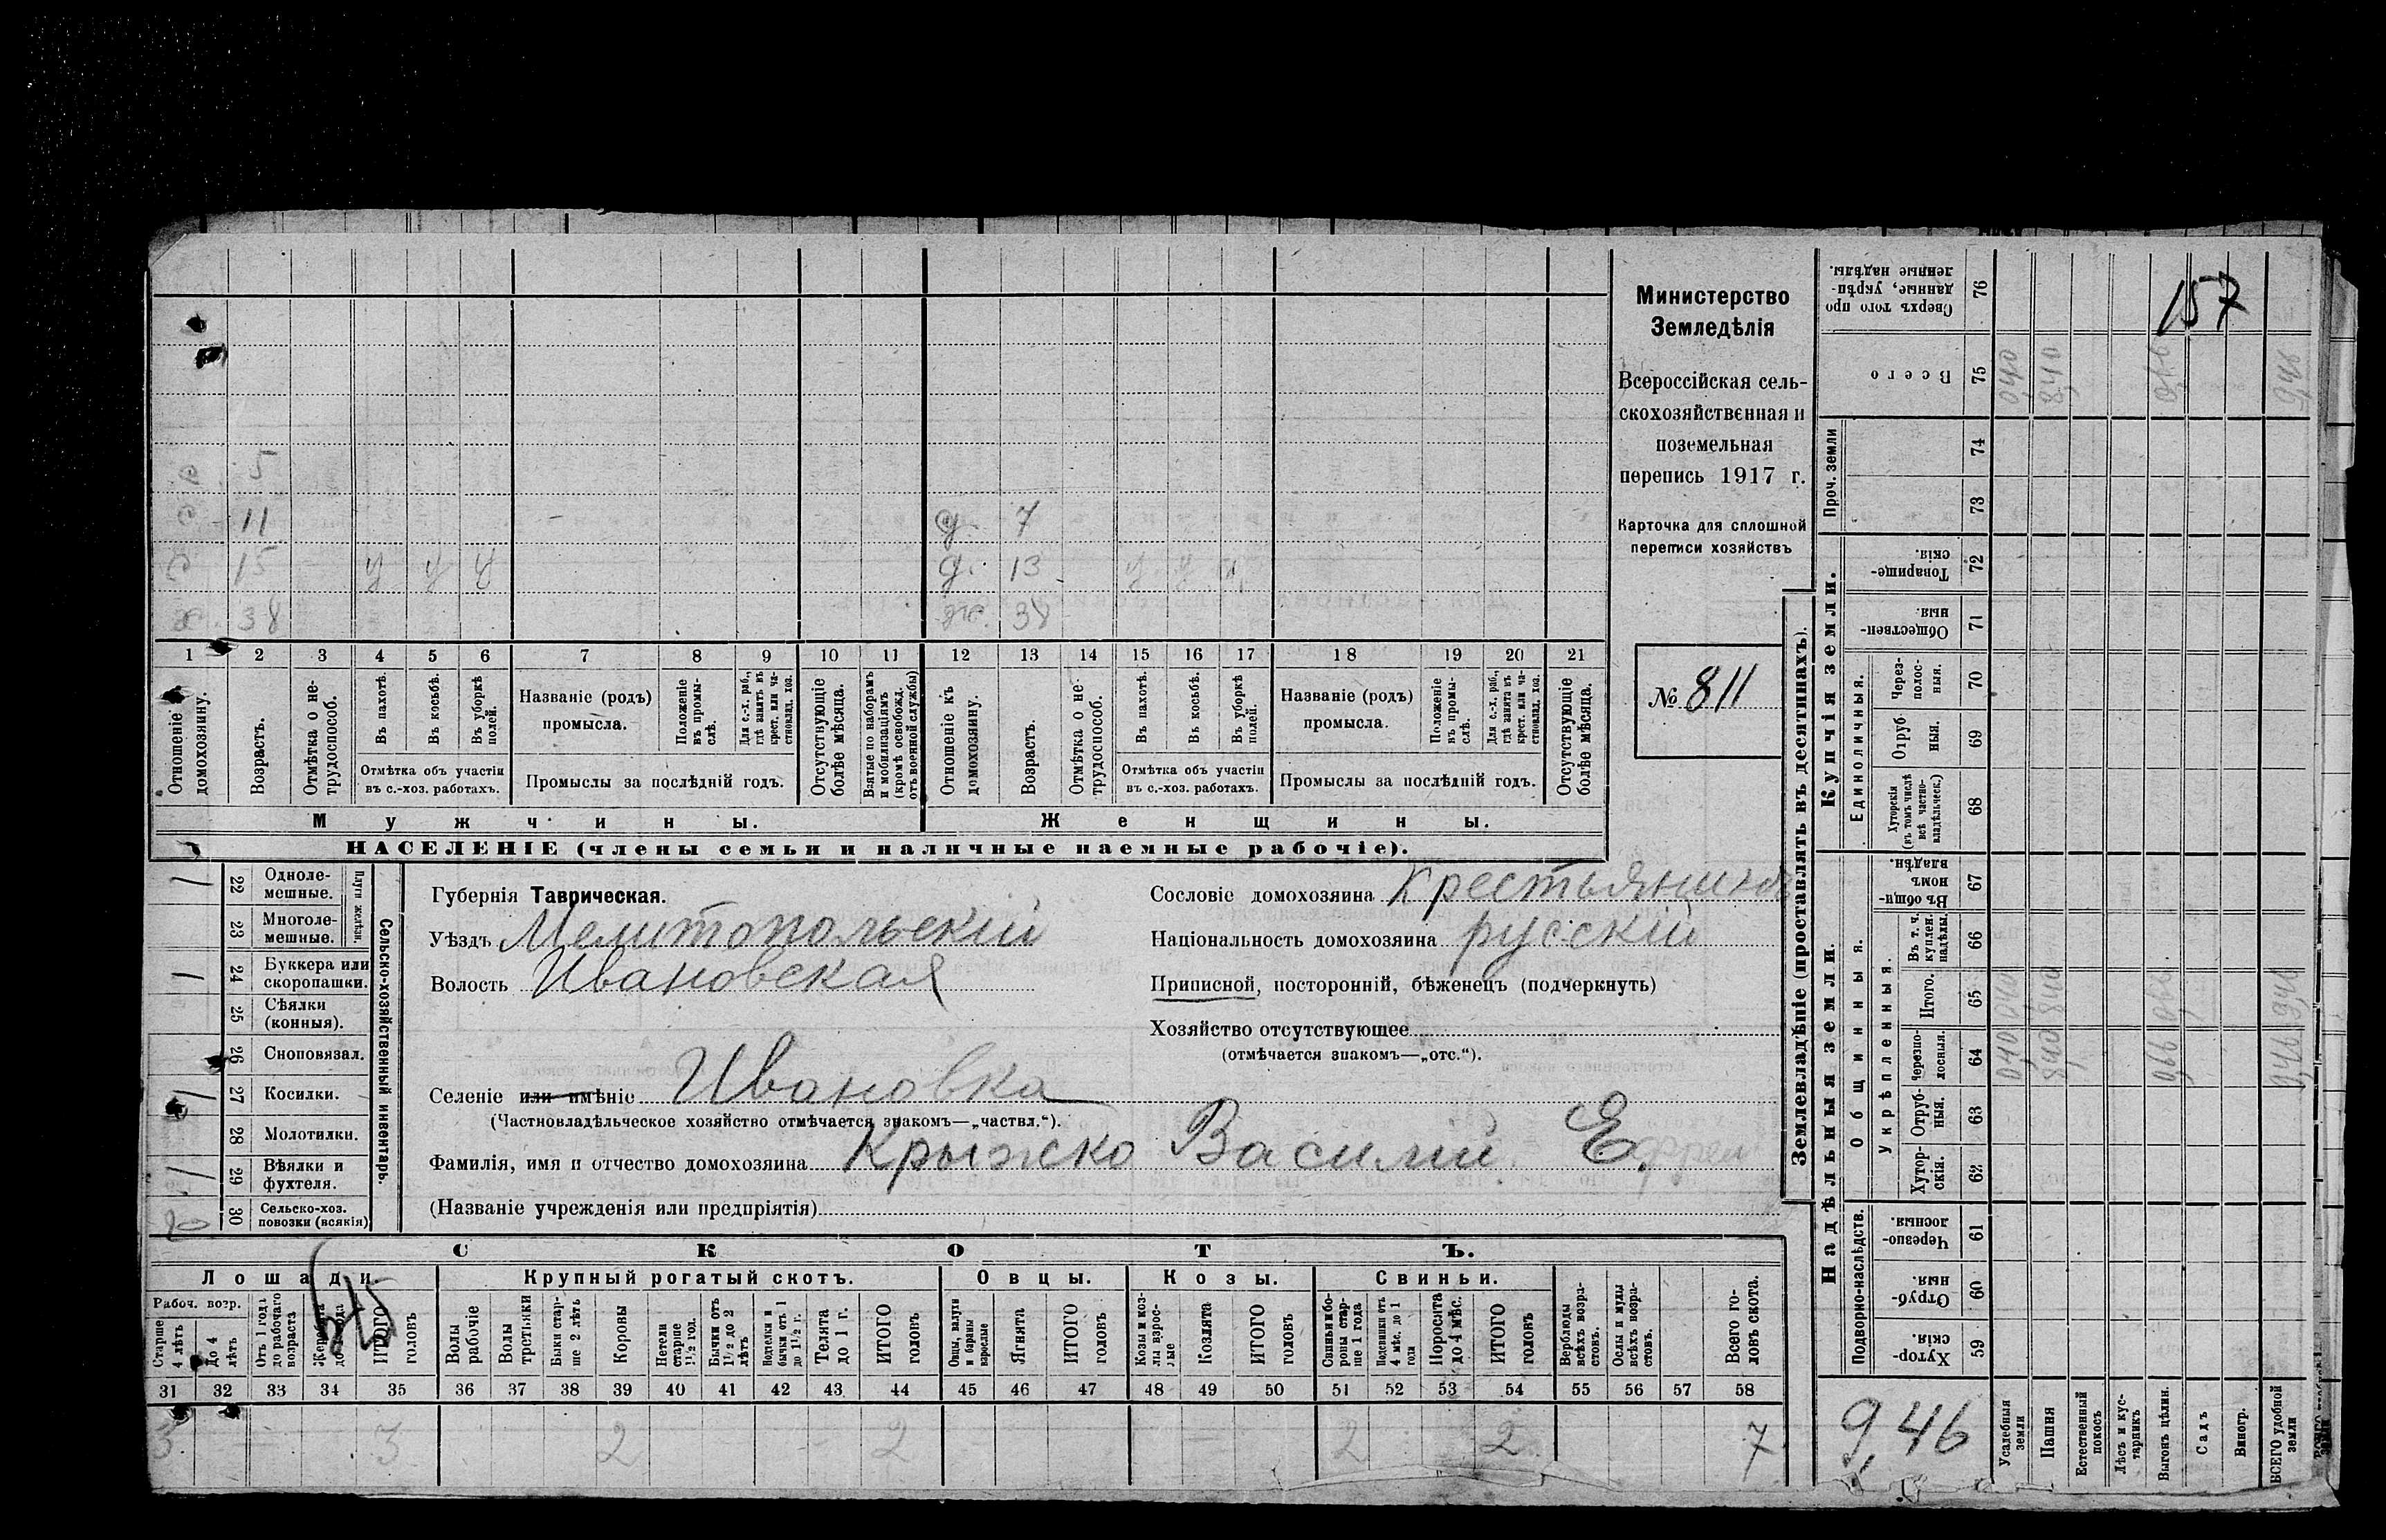 5
11 д. 7
15 у у у д. 13 у у у
х. 38 ж. 38
1 2 3 4 5 6 7 8 9 10 11 12 13 14 15 16 17 18 19 20 21
Отношеніе къ домохозяину.
Возрастъ.
Отмѣтка о нетрудоспособ.
Въ пахотѣ.
Въ косьбѣ.
Въ уборкѣ полей.
Отмѣтка объ участіи
въ с.-хоз. работахъ.
Названіе (родъ)
промысла.
Положеніе въ промыслѣ.
Для с.-х. раб., гдѣ занятъ въ крест. или частновлад. хоз.
Промыслы за послѣдній годъ.
Отсутствующіе болѣе мѣсяца.
Взятые по наборамъ и мобилизаціямъ (кромѣ освобожд. отъ военной службы)
Отношеніе къ домохозяину.
Возрастъ.
Отмѣтка о нетрудоспособ.
Въ пахотѣ.
Въ косьбѣ.
Въ уборкѣ полей.
Отмѣтка объ участіи
въ с.-хоз. работахъ.
Названіе (родъ)
промысла.
Положеніе въ промыслѣ.
Для с.-х. раб., гдѣ занята въ крест. или частновлад. хоз.
Промыслы за послѣдній годъ.
Отсутствующіе болѣе мѣсяца.
Мужчины.
Женщины.
НАСЕЛЕНІЕ (члены семьи и наличные наемные рабочіе).
Министерство
Земледѣлія
Всероссійская сель-
скохозяйственная и
поземельная
перепись 1917 г.
Карточка для сплошной
переписи хозяйствъ
№ 811
Сельско-хозяйственный инвентарь.
Плуги желѣзн.
1 22 Одноле-
мешные.
23 Многоле-
мешные.
1 24 Буккера или
скоропашки.
25 Сѣялки
(конныя).
26 Сноповязал.
1 27 Косилки.
28 Молотилки.
1 29 Вѣялки и
фухтеля.
30 Сельско-хоз.
повозки (всякія)
Губернія Таврическая.
Уѣздъ Мелитопольскій
Волость Ивановская
Селеніе или имѣніе Ивановка
(Частновладѣльческое хозяйство отмѣчается знакомъ—„частвл.“).
Фамилія, имя и отчество домохозяина Крыжко Василий Ефрем
(Названіе учрежденія или предпріятія)
Сословіе домохозяина Крестьянинъ
Національность домохозяина русскій
Приписной, посторонній, бѣженецъ (подчеркнуть)
Хозяйство отсутствующее
(отмѣчается знакомъ—„отс.“).
СКОТЪ.
Лошади.
Крупный рогатый скотъ.
Овцы.
Козы.
Свиньи.
Рабоч. возр.
Старше 4 лѣтъ
До 4 лѣтъ
Отъ 1 года до рабочаго возраста
Жеребята до 1 года
ИТОГО головъ
Волы рабочіе
Волы третьяки
Быки старше 2 лѣтъ
Коровы
Нетели старше 1½ год.
Бычки отъ 1½ до 2 лѣтъ
Подтелки и бычки отъ 1 до 1½ г.
Телята до 1 г.
ИТОГО головъ
Овцы, валухи и бараны взрослые
Ягнята
ИТОГО головъ
Козы и козлы взрослые
Козлята
ИТОГО головъ
Свиньи и бороны старше 1 года
Подсвинки отъ 4 мѣс. до 1 года
Поросята до 4 мѣс.
ИТОГО головъ
Верблюды всѣхъ возрастовъ.
Ослы и мулы всѣхъ возрастовъ.
Всего головъ скота.
31 32 33 34 35 36 37 38 39 40 41 42 43 44 45 46 47 48 49 50 51 52 53 54 55 56 57 58
3 3 2 2 2 2 7
Землевладѣніе (проставлять въ десятинахъ).
Купчія земли.
Надѣльныя земли.
Сверхъ того проданные, укрѣпленные надѣлы. 76
157
Всего 75 0,40 8,40 0,66 9,46
Проч. земли 74
73
Товарищескія. 72
Общественныя. 71
Единоличныя.
Черезполосныя. 70
Отрубныя. 69
Хуторскія (въ томъ числѣ всѣ частновладѣльческ.) 68
Общинныя.
Въ общинномъ владѣн. 67
Укрѣпленныя.
Въ т. ч. куплен. надѣлы. 66
Итого. 65 0,40 8,40 0,66 9,46
Черезполосныя. 64 0,40 8,40 0,66 9,46
Отрубныя. 63
Хуторскія. 62
Подворно-наслѣдств.
Черезполосныя. 61
Отрубныя. 60
Хуторскія. 59
9,46
Усадебныя земли
Пашня
Естественный покосъ
Лѣсъ и кустарникъ
Выгонъ цѣлин.
Садъ
Виногр.
ВСЕГО удобной земли